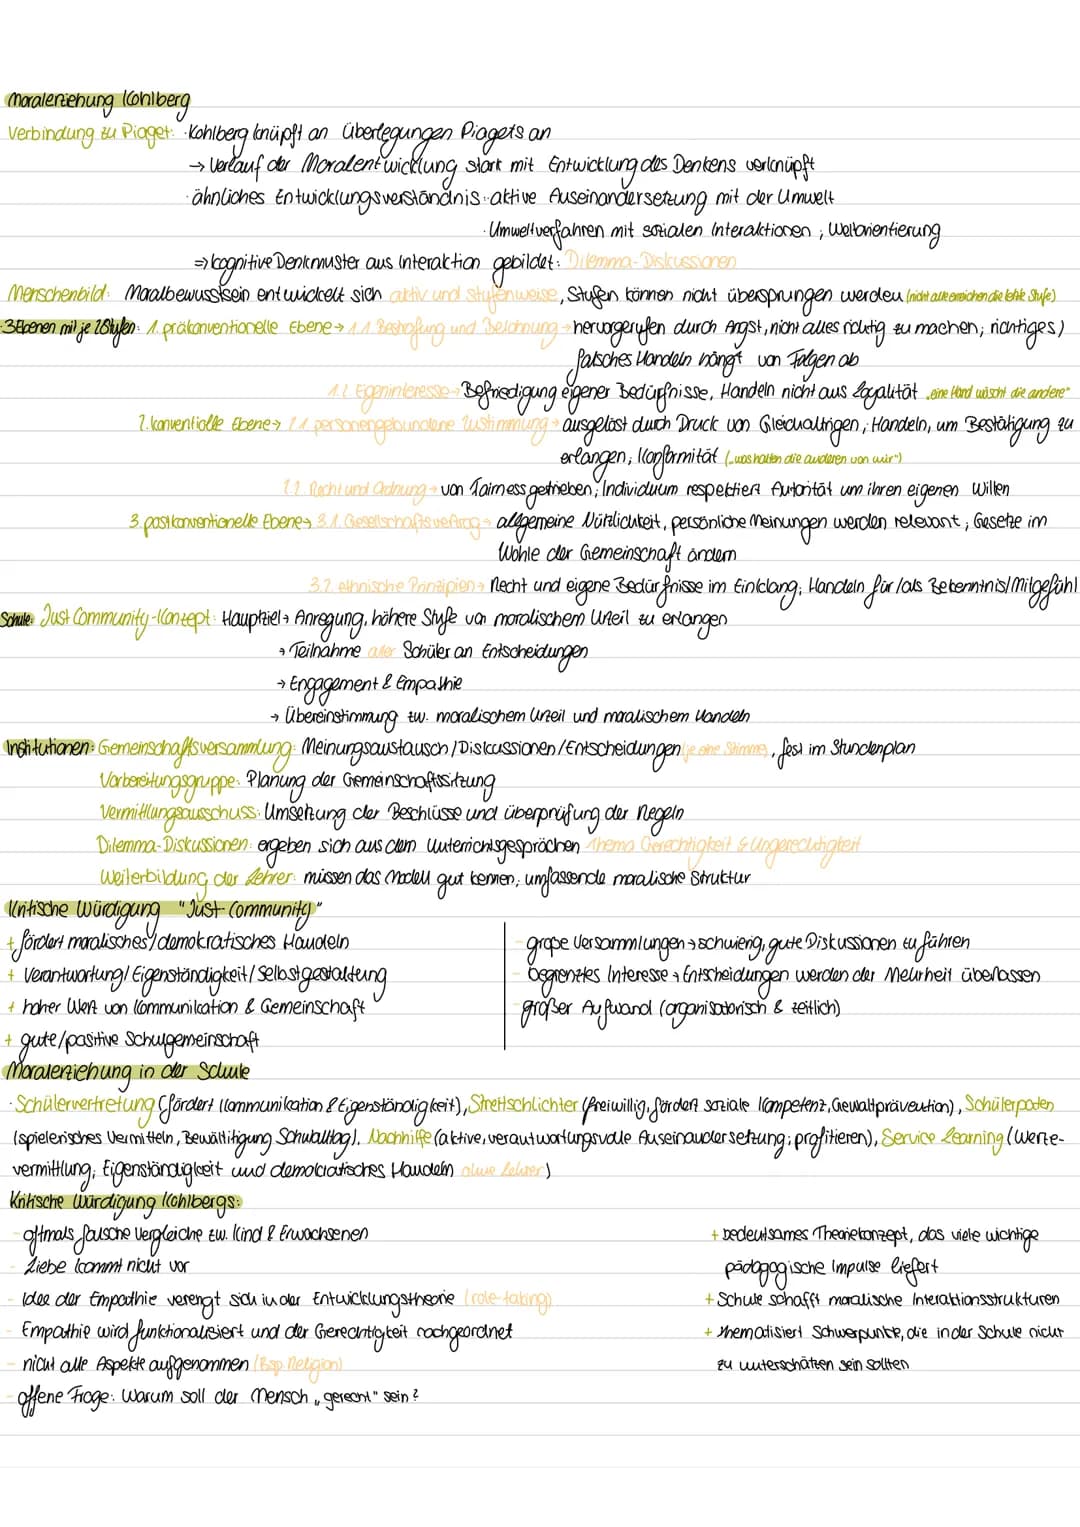 Moralerziehung Kohlberg
Verbindung zu Piaget: · Kohlberg knüpft an Überlegungen Piagets an
→ Verlauf der Moralentwicklung stark mit Entwicklung des Denkens verknüpft
· ähnliches Entwicklungsverständnis: · aktive Auseinandersetzung mit der Umwelt
· Umweltverfahren mit sozialen Interaktionen, Weltorientierung
=> kognitive Denkmuster aus Interaktion gebildet: Dilemma-Diskussionen
Menschenbild: Moralbewusstsein entwickelt sich aktiv und stufenweise, Stufen können nicht übersprungen werden (nicht alle erreichen die letzte Stufe)
3 Ebenen mit je 2 Stufen: 1. präkonventionelle Ebene → 1.1. Bestrafung und Belohnung → hervorgerufen durch Angst, nicht alles richtig zu machen; richtiges/
falsches Handeln hängt von Folgen ab
1.2. Eigeninteresse → Befriedigung eigener Bedürfnisse, Handeln nicht aus Loyalität „eine Hand wäscht die andere"
2. konventiolle Ebene → 2.1. personengebundene Zustimmung → ausgelöst durch Druck von Gleichaltrigen; Handeln, um Bestätigung zu
erlangen; Konformität („was halten die anderen von mir")
2.2. Recht und Ordnung → von Fairness getrieben; Individuum respektiert Autorität um ihren eigenen Willen
3. postkonventionelle Ebene → 3.1. Gesellschaftsvertrag → allgemeine Nützlichkeit, persönliche Meinungen werden relevant; Gesetze im
Wohle der Gemeinschaft ändern
3.2. ethnische Prinzipien → Recht und eigene Bedürfnisse im Einklang; Handeln für/als Bekenntnis/Mitgefühl
Schule: Just Community-Konzept: Hauptziel → Anregung, höhere Stufe von moralischem Urteil zu erlangen
→ Teilnahme aller Schüler an Entscheidungen
→ Engagement & Empathie
→ Übereinstimmung zw. moralischem Urteil und moralischem Handeln
Institutionen: Gemeinschaftsversammlung: Meinungsaustausch/Diskussionen/Entscheidungen (je eine Stimme), fest im Stundenplan
Vorbereitungsgruppe: Planung der Gemeinschaftssitzung
Vermittlungsausschuss: Umsetzung der Beschlüsse und Überprüfung der Regeln
Dilemma-Diskussionen: ergeben sich aus dem Unterrichtsgesprächen Thema Gerechtigkeit & Ungerechtigkeit
Weiterbildung der Lehrer: müssen das Modell gut kennen; umfassende moralische Struktur
Kritische Würdigung "Just-Community"
+ fördert moralisches/demokratisches Handeln
+ Verantwortung/Eigenständigkeit/Selbstgestaltung
+ hoher Wert von Kommunikation & Gemeinschaft
+ gute/positive Schulgemeinschaft
- große Versammlungen → schwierig, gute Diskussionen zu führen
- begrenztes Interesse → Entscheidungen werden der Mehrheit überlassen
- großer Aufwand (organisatorisch & zeitlich)
Moralerziehung in der Schule
· Schülervertretung (fördert Kommunikation & Eigenständigkeit), Streitschlichter (freiwillig, fördert soziale Kompetenz, Gewaltprävention), Schülerpaten
(spielerisches Vermitteln, Bewältitigung Schulalltag), Nachhilfe (aktive, verantwortungsvolle Auseinandersetzung; profitieren), Service Learning (Werte-
vermittlung; Eigenständigkeit und demokratisches Handeln ohne Lehrer)
Kritische Würdigung Kohlbergs:
- oftmals falsche Vergleiche zw. Kind & Erwachsenen
- Liebe kommt nicht vor
- Idee der Empathie verengt sich in der Entwicklungstheorie (role-taking)
- Empathie wird funktionalisiert und der Gerechtigkeit nachgeordnet
- nicht alle Aspekte aufgenommen (Bsp. Religion)
- offene Frage: Warum soll der Mensch „gerecht" sein?
+ bedeutsames Theoriekonzept, das viele wichtige
pädagogische Impulse liefert
+ Schule schafft moralische Interaktionsstrukturen
+ thematisiert Schwerpunkte, die in der Schule nicht
zu unterschätzen sein sollten